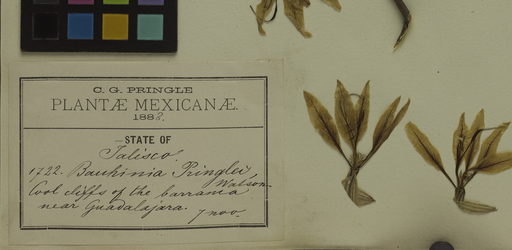 C. G. PRINGLE
PLANTÆ MEXICANÆ.
1888.
STATE OF
Jalisco.
1722. Bauhinia Pringlei
Watson
Cool cliffs of the barranca
near Guadalajara.
7 nov.